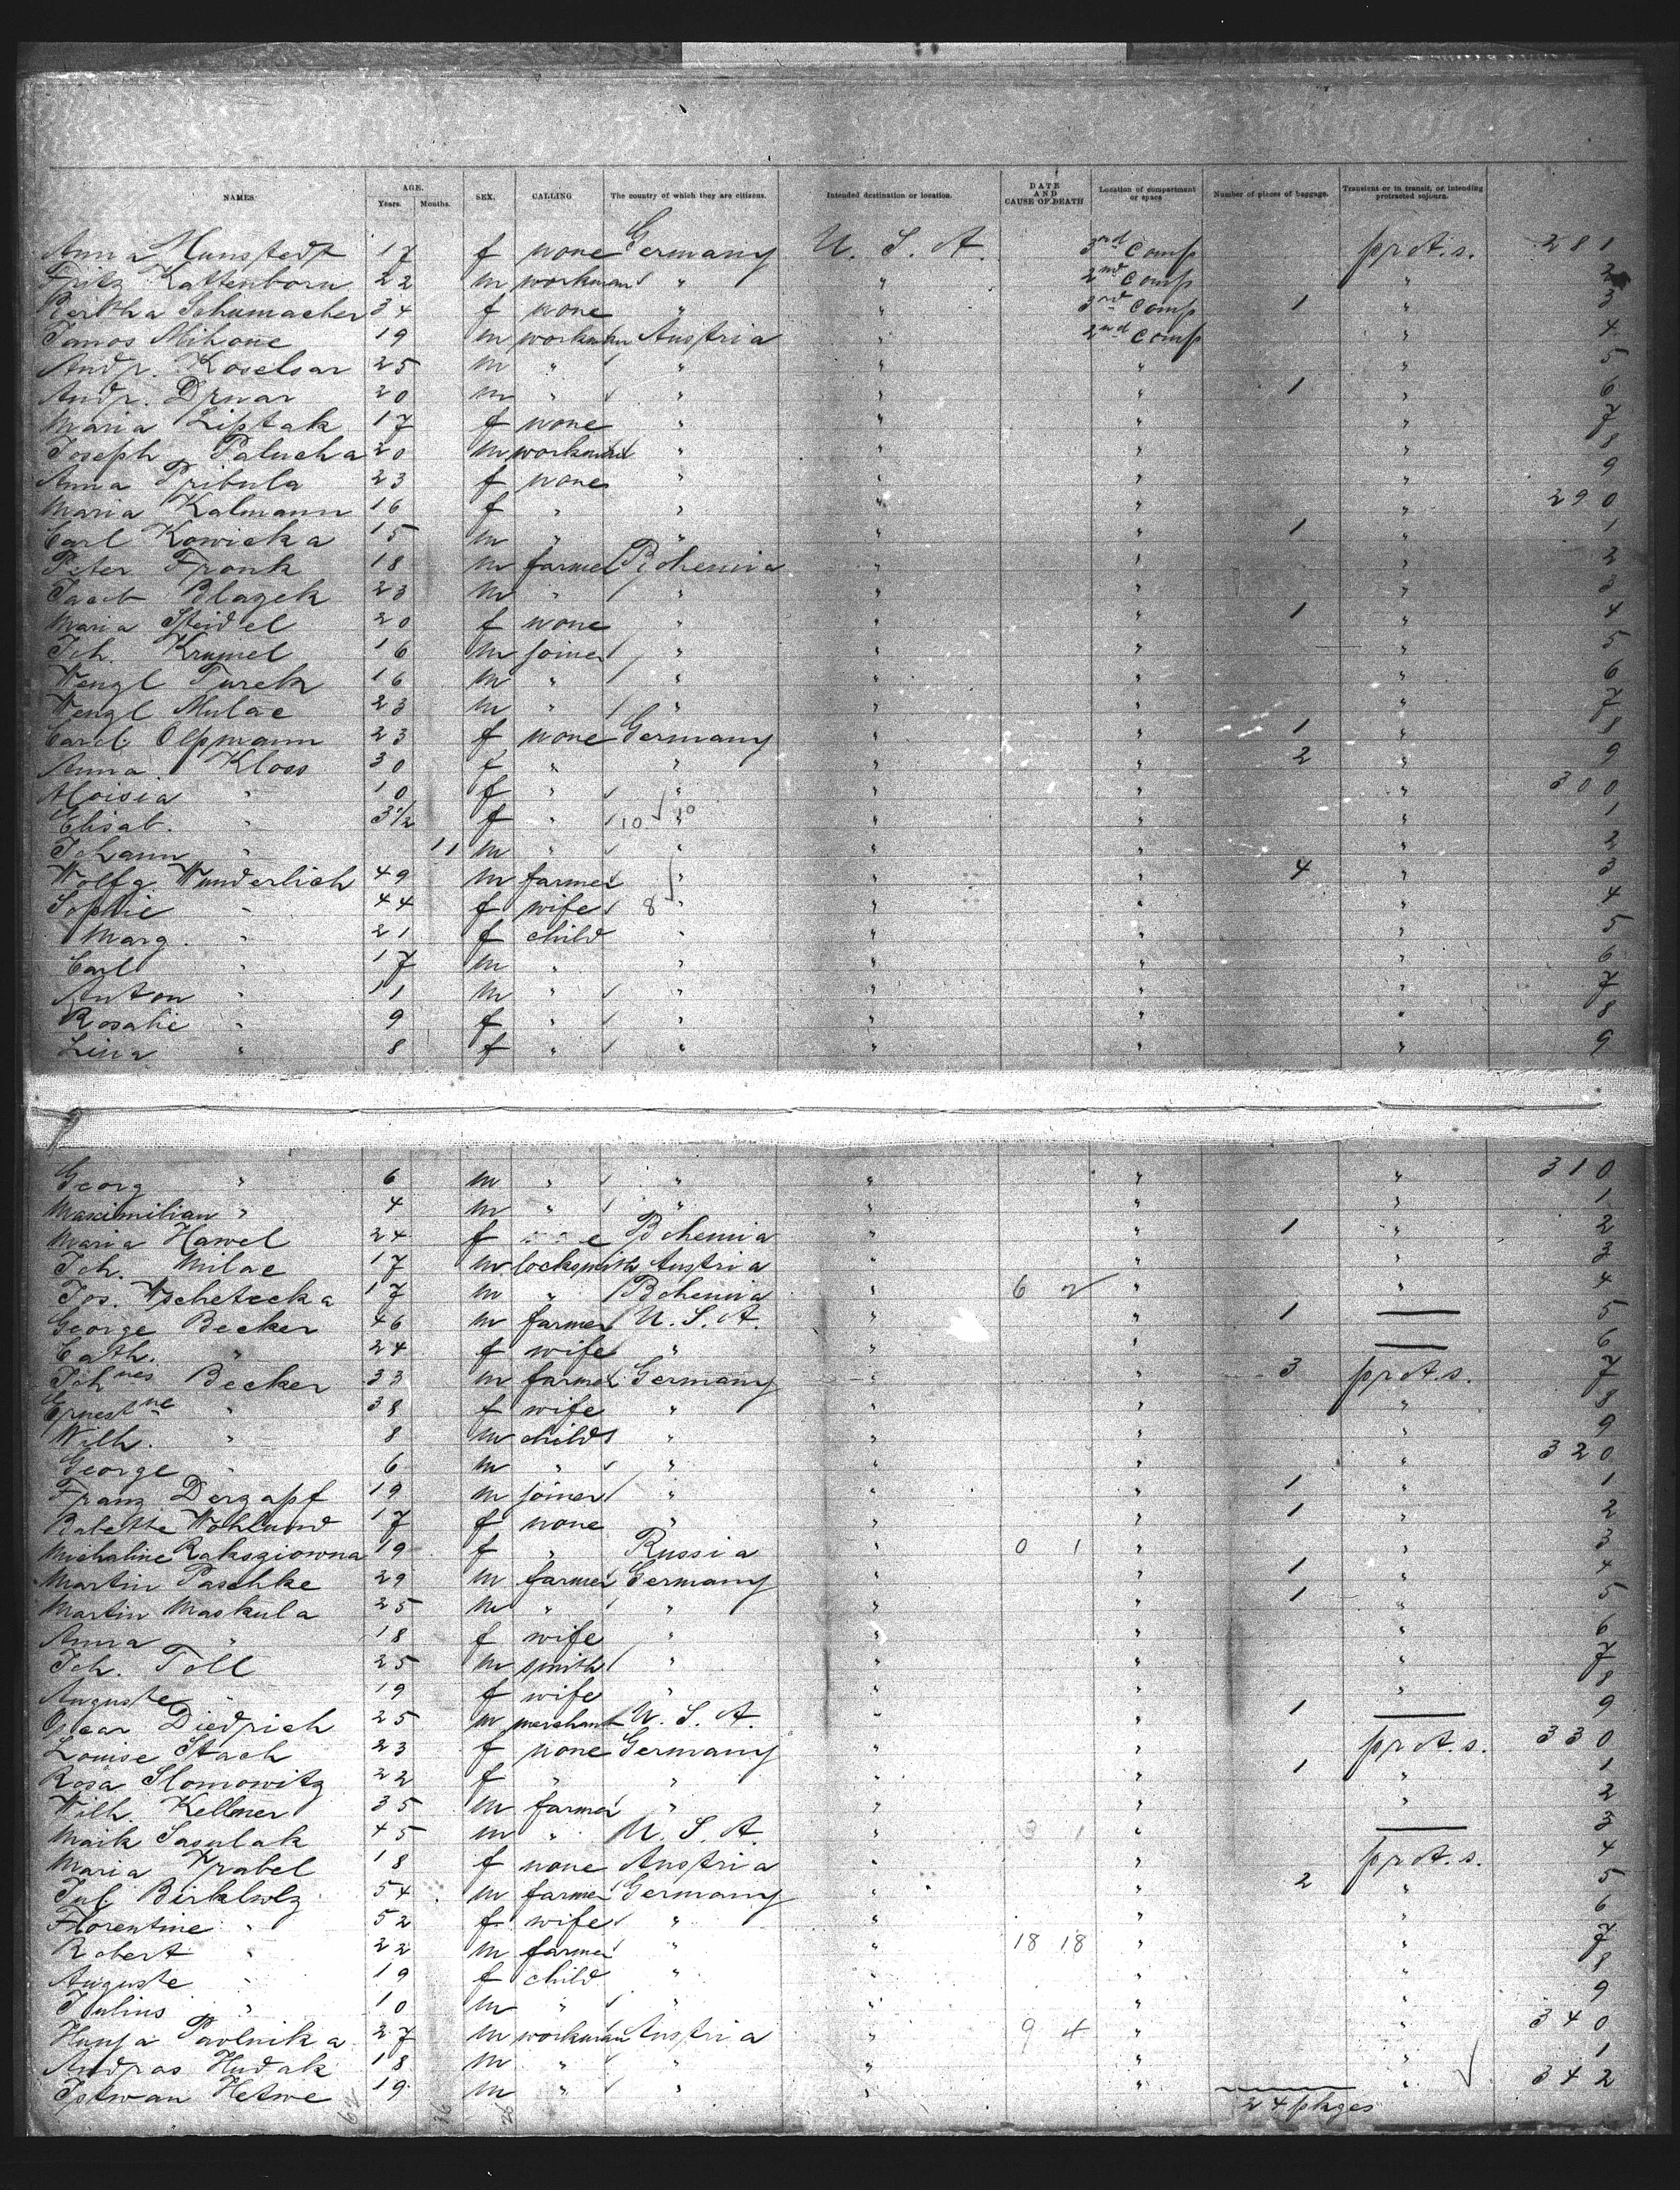 NAMES AGE. Years. Months. SEX. CALLING The country of which they are citizens. Intended destination or location. DATE AND CAUSE OF DEATH Location of compartment or space Number of pieces of baggage. Transient or in transit, or intending protracted sojourn.
Anna Munstedt 17 f none Germany U. S. A. 3rd Comp prt.s. 281
Fritz Kattenborn 22 m workman " " 2nd Comp " 2
Bertha Schumacher 34 f none " " 3rd Comp 1 " 3
Janos Mihouc 19 m workman Austria " 2nd Comp " 4
Andr. Koselsar 25 m " " " " " 5
Andr. Drwar 20 m " " " " 1 " 6
Maria Liptak 17 f none " " " " 7
Joseph Palucha 20 m workman " " " " 8
Anna Pribula 23 f none " " " " 9
Maria Kalmann 16 f " " " " " 290
Carl Kowicka 15 m " " " " 1 " 1
Peter Fronk 18 m farmer Bohemia " " " 2
Jacob Blazek 23 m " " " " " 3
Maria Steidel 20 f none " " " 1 " 4
Joh. Krumel 16 m joiner " " " " 5
Wenzl Turek 16 m " " " " " 6
Wenzl Mulac 23 m " " " " " 7
Carol. Olpmann 23 f none Germany " " 1 " 8
Anna Kloss 30 f " " " " 2 " 9
Aloisia " 10 f " " " " " 300
Elisab. " 3 1/2 f " 10 10 " " " " 1
Johann " 11 m " " " " " 2
Wolfg. Wunderlich 49 m farmer " " " 4 " 3
Sophie " 44 f wife 8 " " " " 4
Marg. " 21 f child " " " " 5
Carl " 17 m " " " " " 6
Anton " 11 m " " " " " 7
Rosalie " 9 f " " " " " 8
Lina " 8 f " " " " " 9
Georg " 6 m " " " " " 310
Maximilian " 4 m " " " " " 1
Maria Hawel 24 f Bohemia " " 1 " 2
Joh. Milac 17 m locksmith Austria " " " 3
Jos. Wschetecka 17 m " Bohemia " 6 2 " " 4
George Becker 46 m farmer U. S. A. " " 1 — 5
Cath. " 24 f wife " " " — 6
Johnes Becker 33 m farmer Germany " " 3 prt.s. 7
Ernestne " 38 f wife " " " " 8
Wilh. " 8 m child " " " " 9
George " 6 m " " " " " 320
Franz Derzapf 19 m joiner " " " 1 " 1
Babette Wohlund 17 f none " " " 1 " 2
Michaline Raksziowna 19 f " Russia " 0 1 " " 3
Martin Paschke 29 m farmer Germany " " 1 " 4
Martin Maskula 25 m " " " " 1 " 5
Anna " 18 f wife " " " " 6
Joh. Toll 25 m smith " " " " 7
Auguste " 19 f wife " " " " 8
Oscar Diedrich 25 m merchant U. S. A. " " 1 — 9
Louise Stach 23 f none Germany " " prt.s. 330
Rosa Slomowitz 22 f " " " " 1 " 1
Wilh. Kellmer 35 m farmer " " " " 2
Maik Sasulak 45 m " U. S. A. " 3 1 " — 3
Maria Krabel 18 f none Austria " " prt.s. 4
Jul. Birkholz 54 m farmer Germany " " 2 " 5
Florentine " 52 f wife " " " " 6
Robert " 22 m farmer " " 18 18 " " 7
Auguste " 19 f child " " " " 8
Julius " 10 m " " " " " 9
Hunja Pavlnika 27 m workman Austria " 9 4 " " 340
Andras Hudak 18 m " " " " " 1
Istwan Hetwe 19 m " " " " " 342
24 pkges